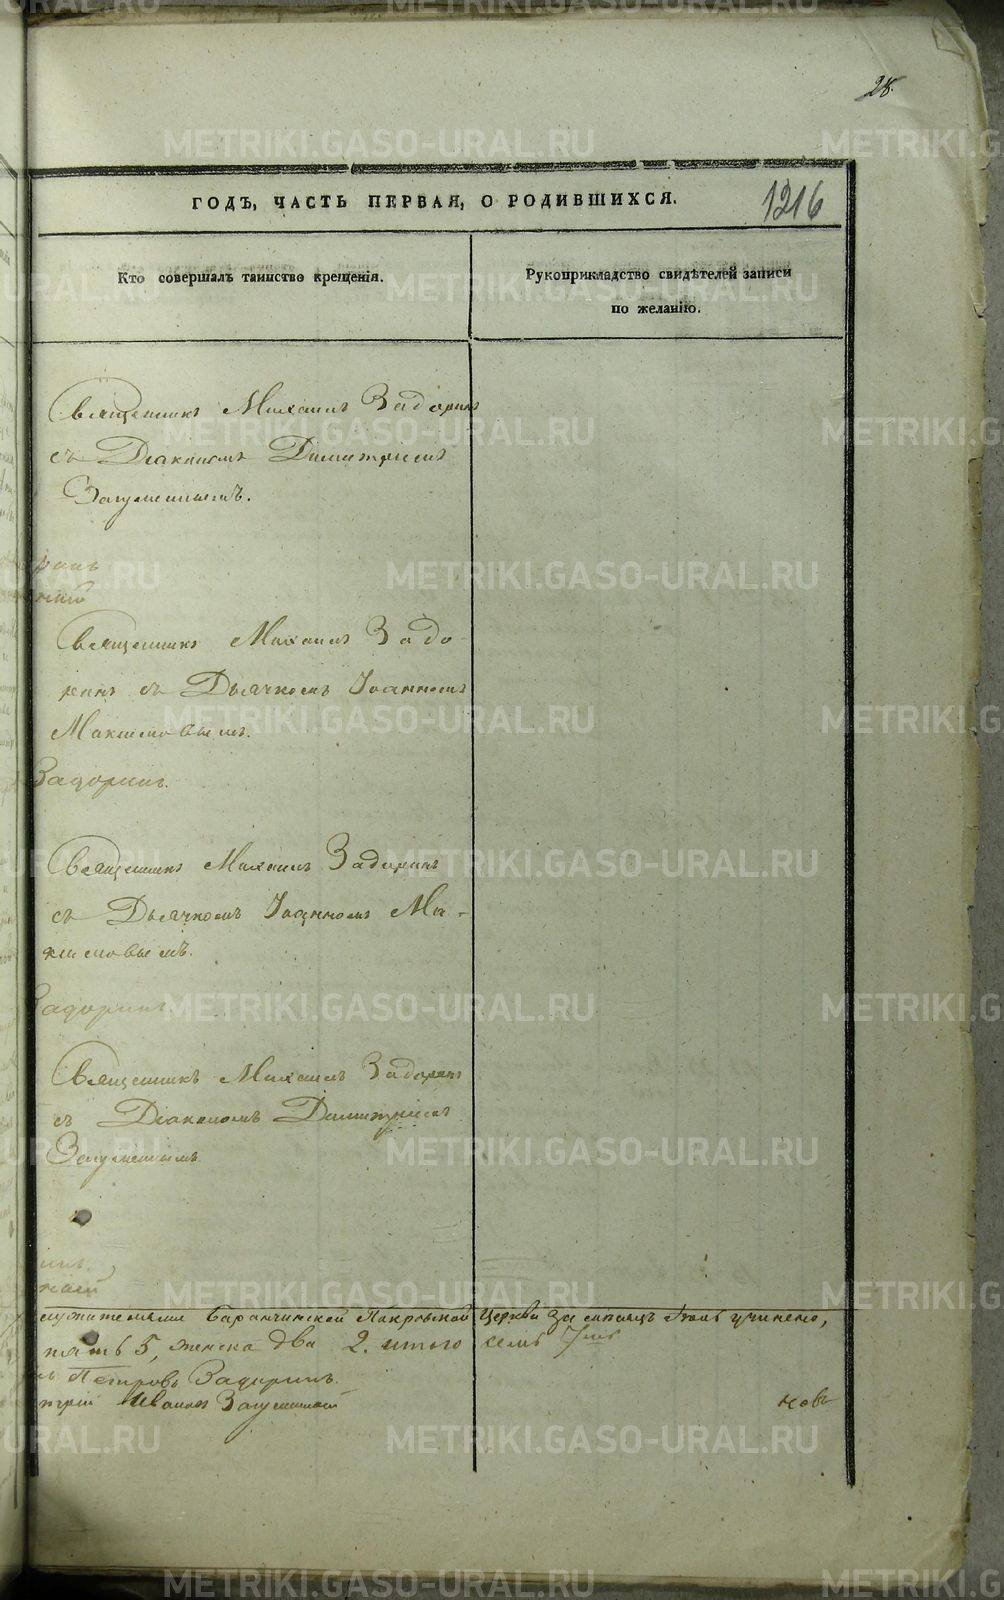 28.
ГОДЪ, ЧАСТЬ ПЕРВАЯ, О РОДИВШИХСЯ.
1216
Кто совершалъ таинство крещенія.
Рукоприкладство свидѣтелей записи
по желанію.
Священникъ Михаилъ Задоринъ
съ Діакономъ Димитріемъ
Загуменнымъ.
ринъ
Священникъ Михаилъ Задо
ринъ съ Дьячкомъ Іоанномъ
Максимовымъ.
Задоринъ.
Священникъ Михаилъ Задоринъ
съ Дьячкомъ Іоанномъ Ма-
ксимовымъ.
Задоринъ
Священникъ Михаилъ Задоринъ
съ Діакономъ Димитріемъ
Загуменнымъ.
служителями Баранчинской Покровской Церкви за мѣсяцъ учинено,
пять 5, женска два 2. итого семь 7мь
Петровъ Задоринъ.
Ивановъ Загуменный
METRIKI.GASO-URAL.RU